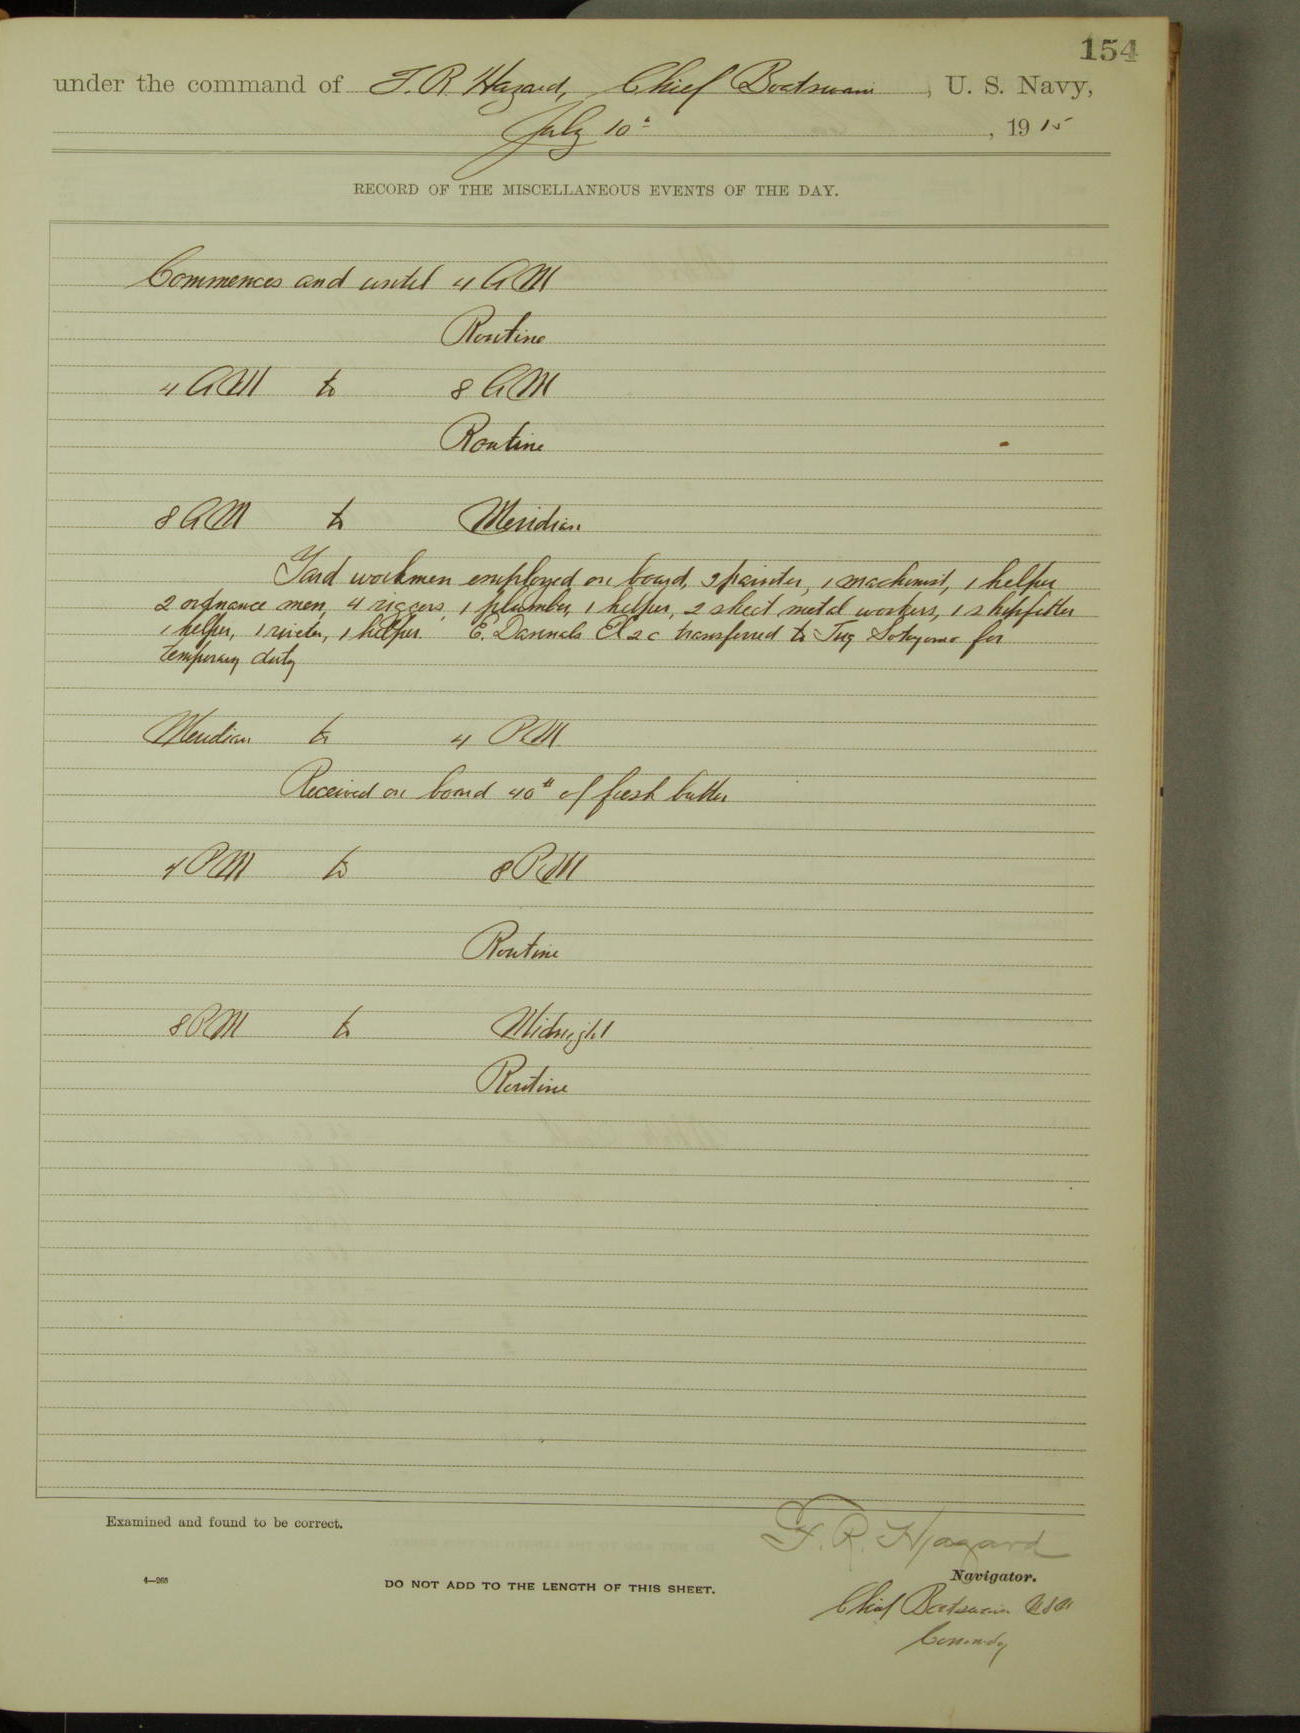 154
under the command of F. R. Hazard, Chief Boatswain, U. S. Navy,
July 10th, 1915
RECORD OF THE MISCELLANEOUS EVENTS OF THE DAY.
Commences and until 4 AM
Routine
4 AM to 8 AM
Routine
8 AM to Meridian
Yard workmen employed on board, 2 painter, 1 machinist, 1 helper
2 ordnance men, 4 riggers, 1 plumber, 1 helper, 2 sheet metal workers, 1 shipfitter
1 helper, 1 riveter, 1 helper. E. El 2c transferred to Tug Sotoyomo for
temporary duty
Meridian to 4 PM
Received on board 40# of fresh butter
4 PM to 8 PM
Routine
8 PM to Midnight
Routine
Examined and found to be correct.
F. R. Hazard
Navigator.
4—265
DO NOT ADD TO THE LENGTH OF THIS SHEET.
Chief Boatswain USN
Comndg